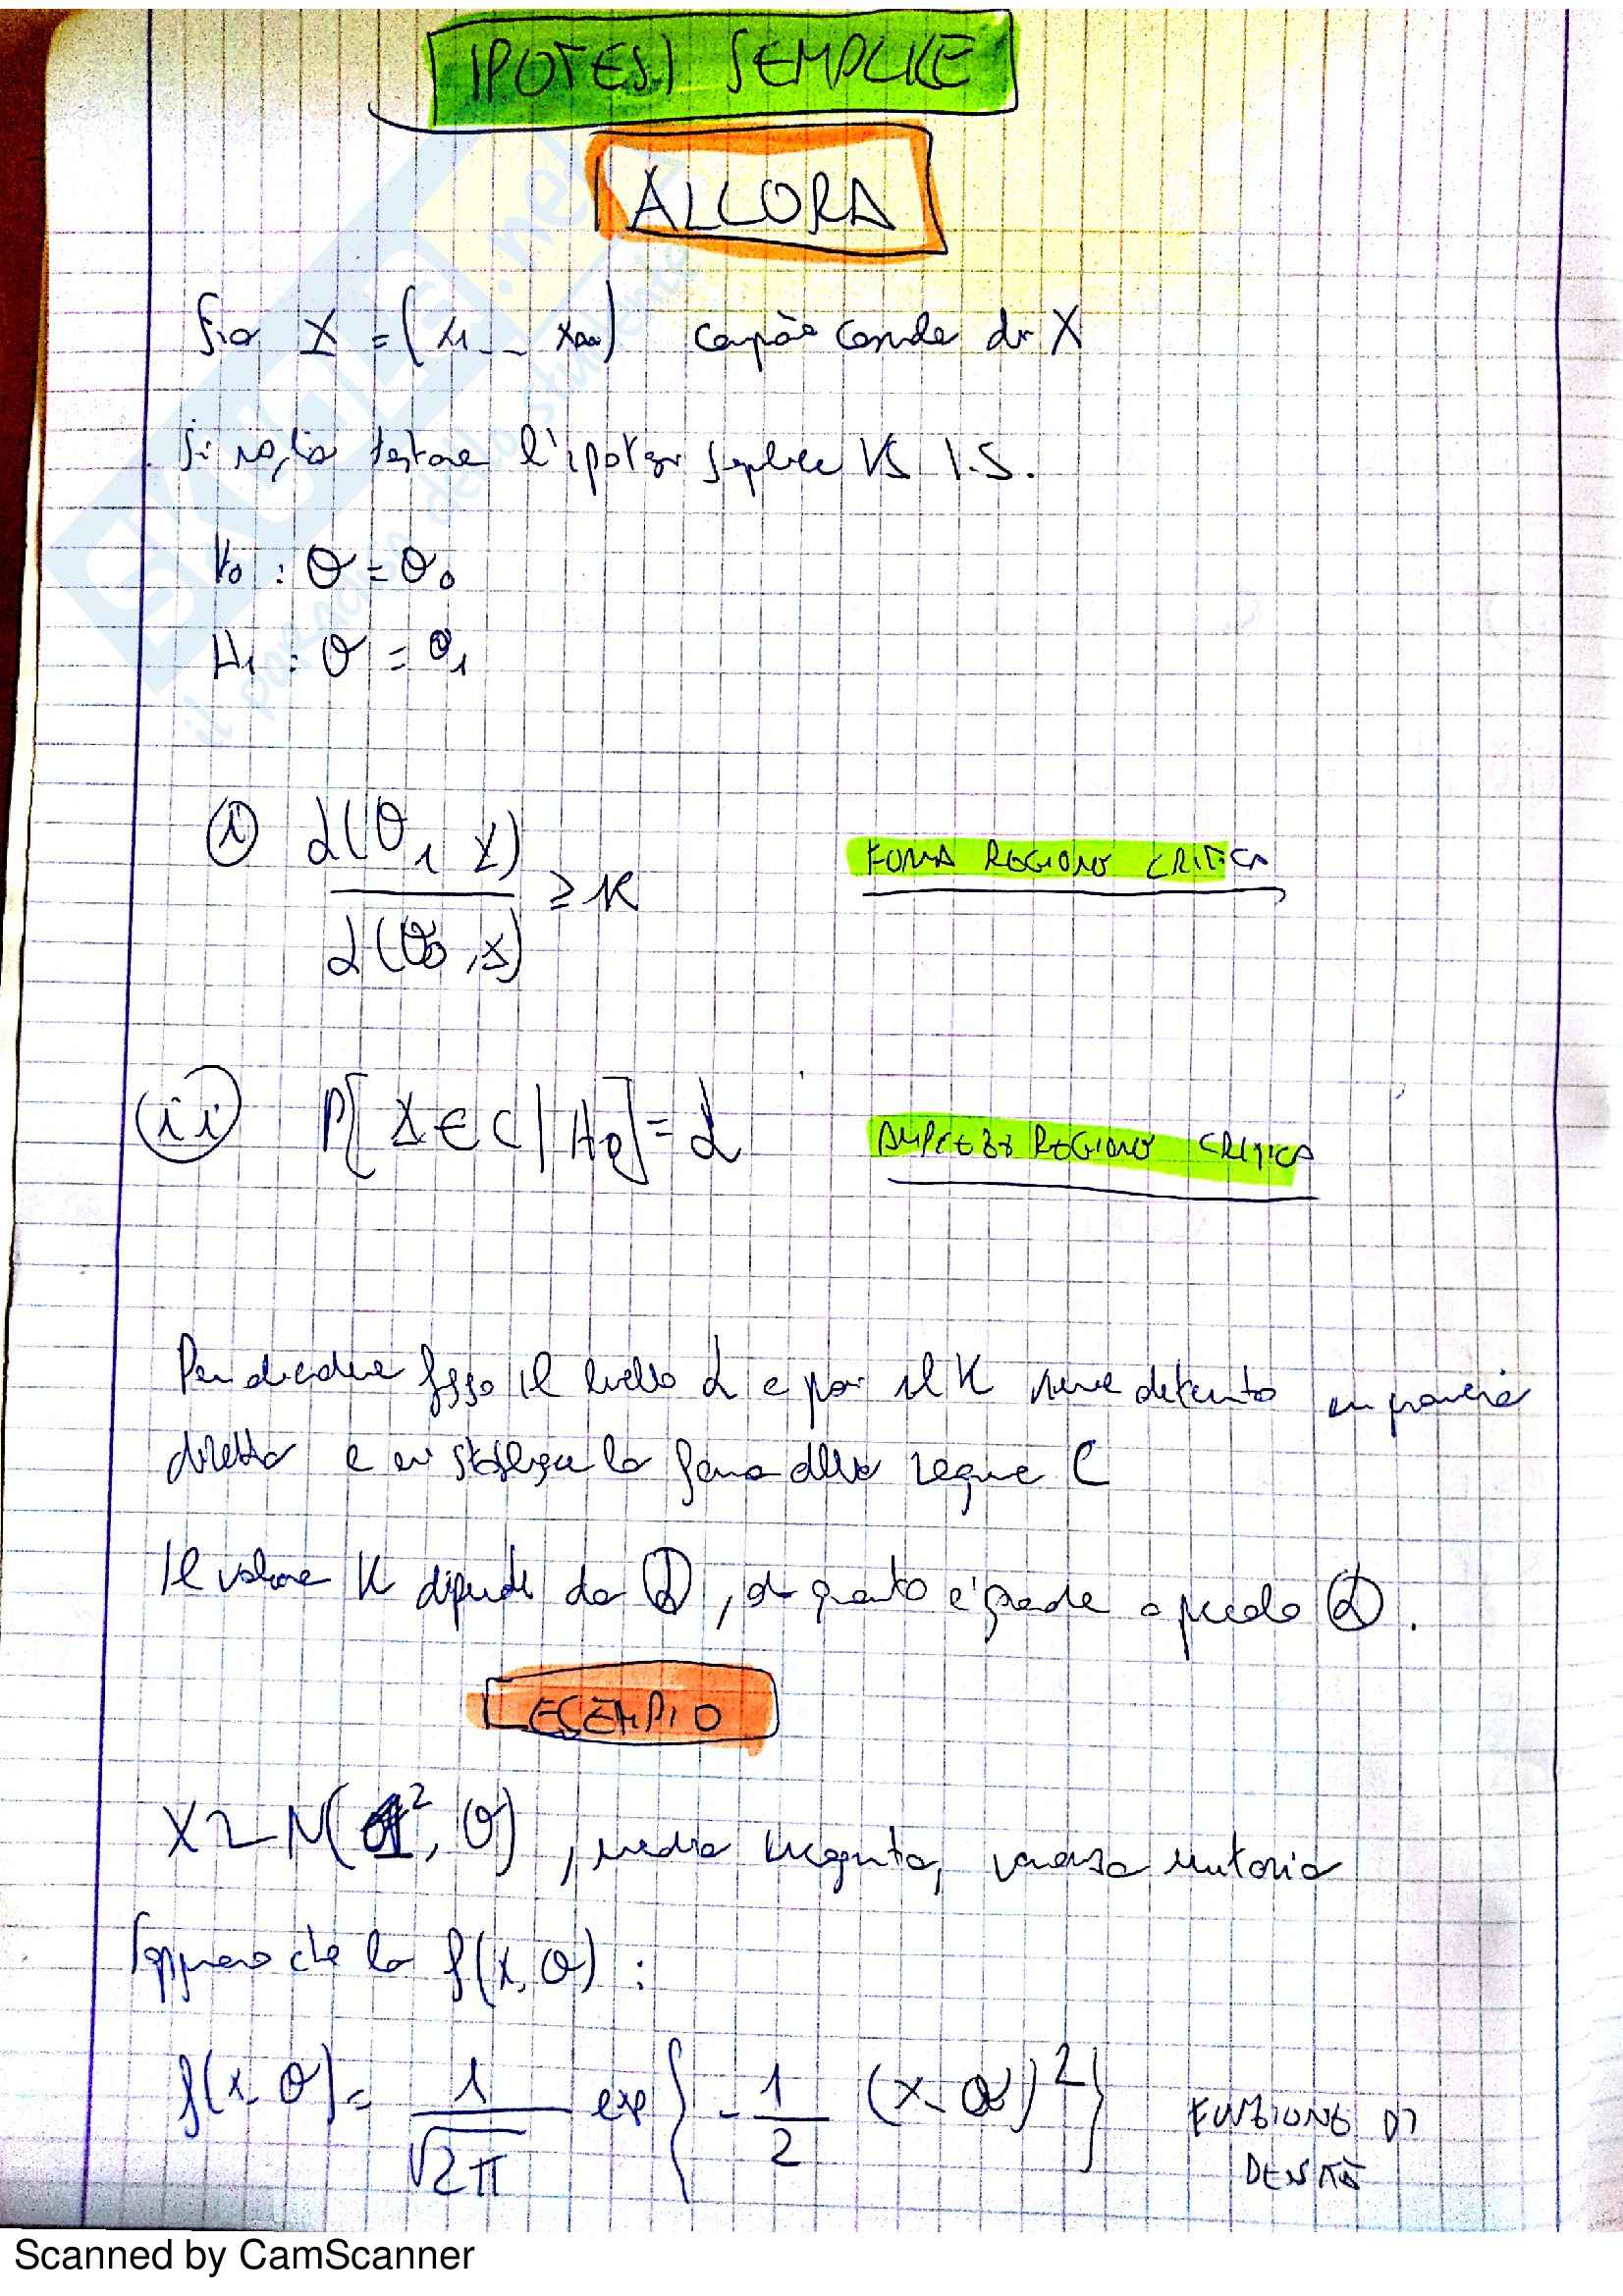 IPOTESI SEMPLICE
ALLORA
Sia X = (x1 -- xm) campione casuale da X
Si voglia testare l'ipotesi semplice VS I.S.
H0 : θ = θ0
H1 : θ = θ1
(i) L(θ1 X) / L(θ0, X) ≥ K FORMA REGIONE CRITICA
(ii) P[X ∈ C | H0] = α AMPIEZZA REGIONE CRITICA
Per decidere fisso il livello α e poi il K viene in maniera
diretta e si stabilisce la forma della regione C
Il valore K dipende da α, da quanto è grande o piccolo α.
ESEMPIO
X ~ N( , θ), media incognita, varianza unitaria
Sappiamo che la f(x, θ) :
f(x, θ) = 1/√2π exp{ -1/2 (x - θ)^2 } FUNZIONE DI
DENSITÀ
Scanned by CamScanner
SKUOLA.net
il paradiso dello studente